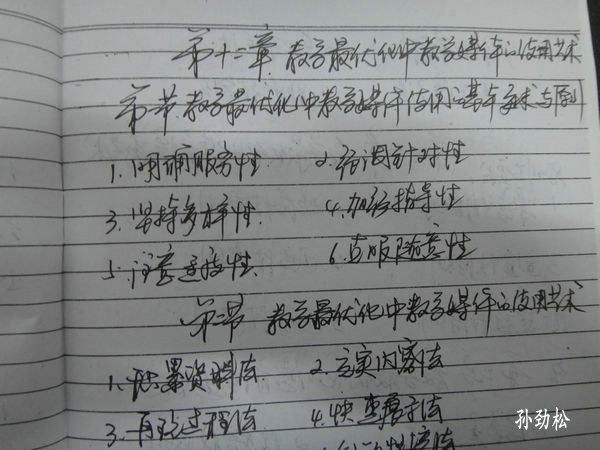 第十二章 教学最优化中教学媒体的使用艺术
第一节 教学最优化中教学媒体使用的基本要求与原则
1.明确服务性 2.强调针对性
3.坚持多样性 4.加强指导性
5.注意适度性 6.克服随意性
第二节 教学最优化中教学媒体的使用艺术
1.积累资料法 2.充实内容法
3.再现过程法 4.快
孙劲松